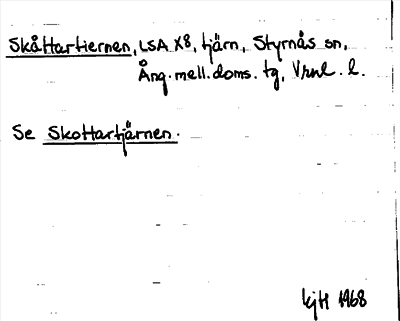 Skåttartiernen, LSA X8, tjärn, Styrnäs sn,
Ång. mell. doms. tg, Vrnl. l.
Se Skottartjärnen.
KjH 1968